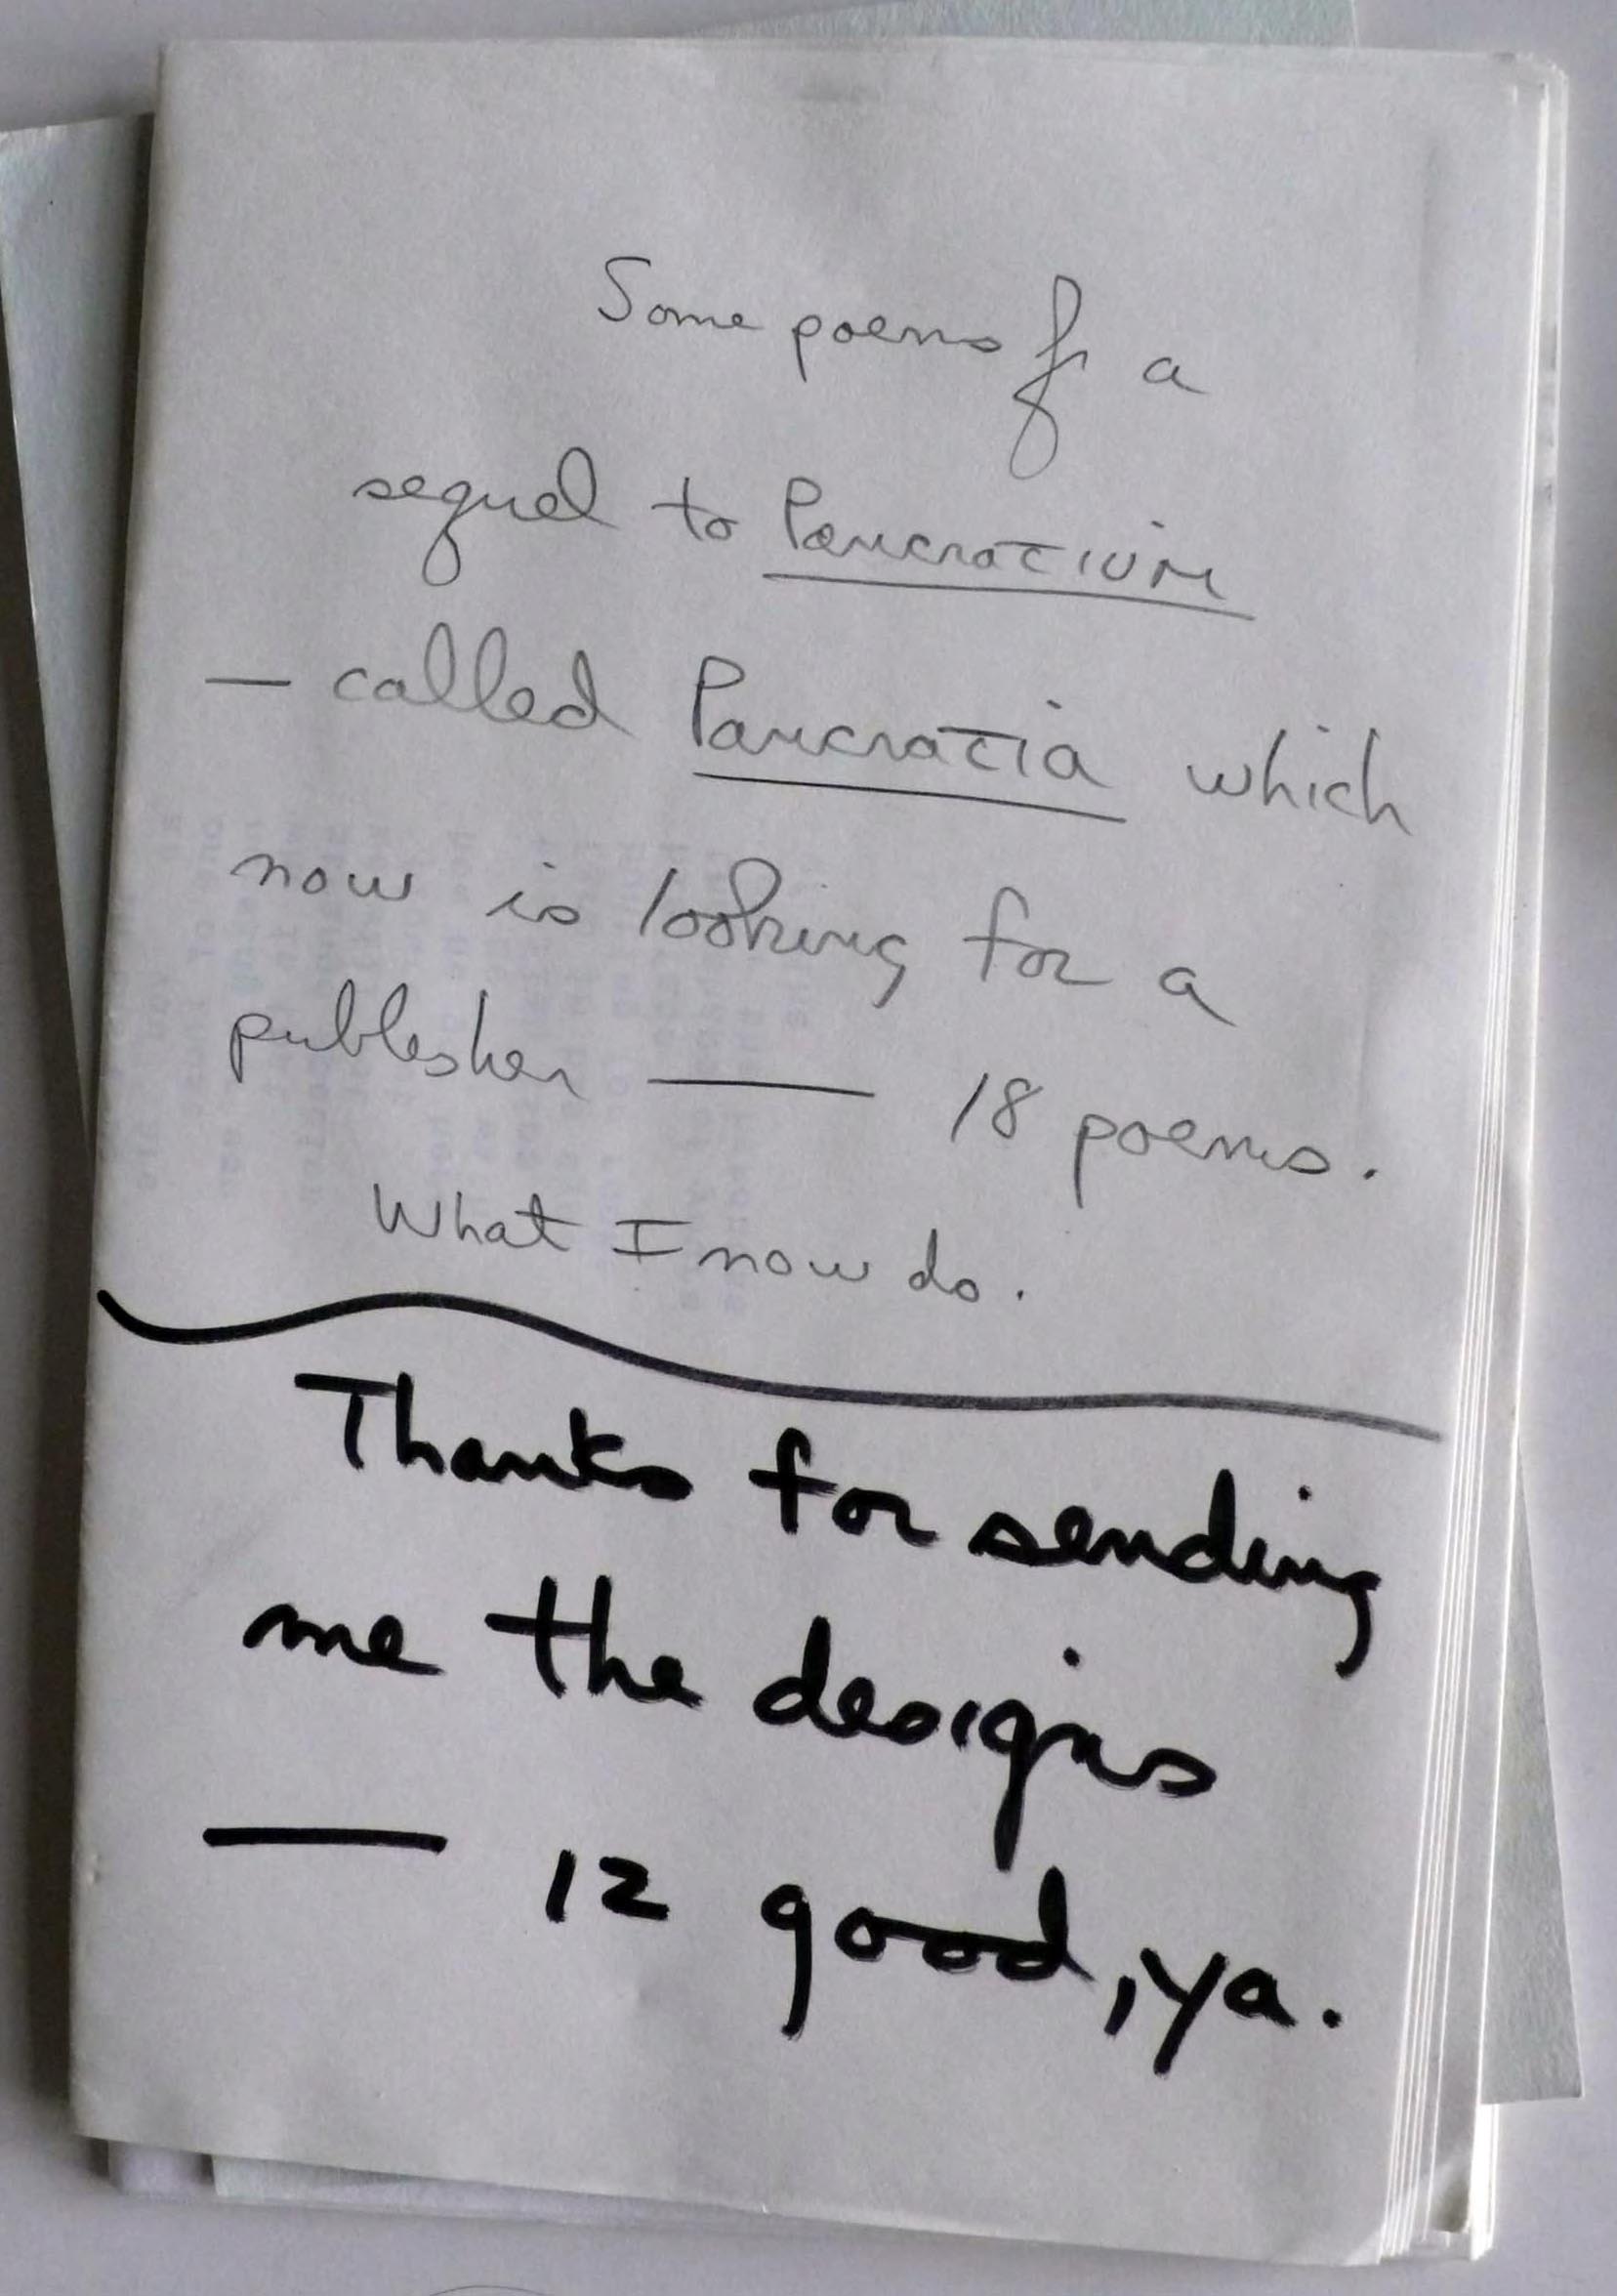 Some poems fr a
sequel to Pancratium
— called Pancratia which
now is looking for a
publisher — 18 poems.
What I now do.
Thanks for sending
me the designs
— 12 good, ya.